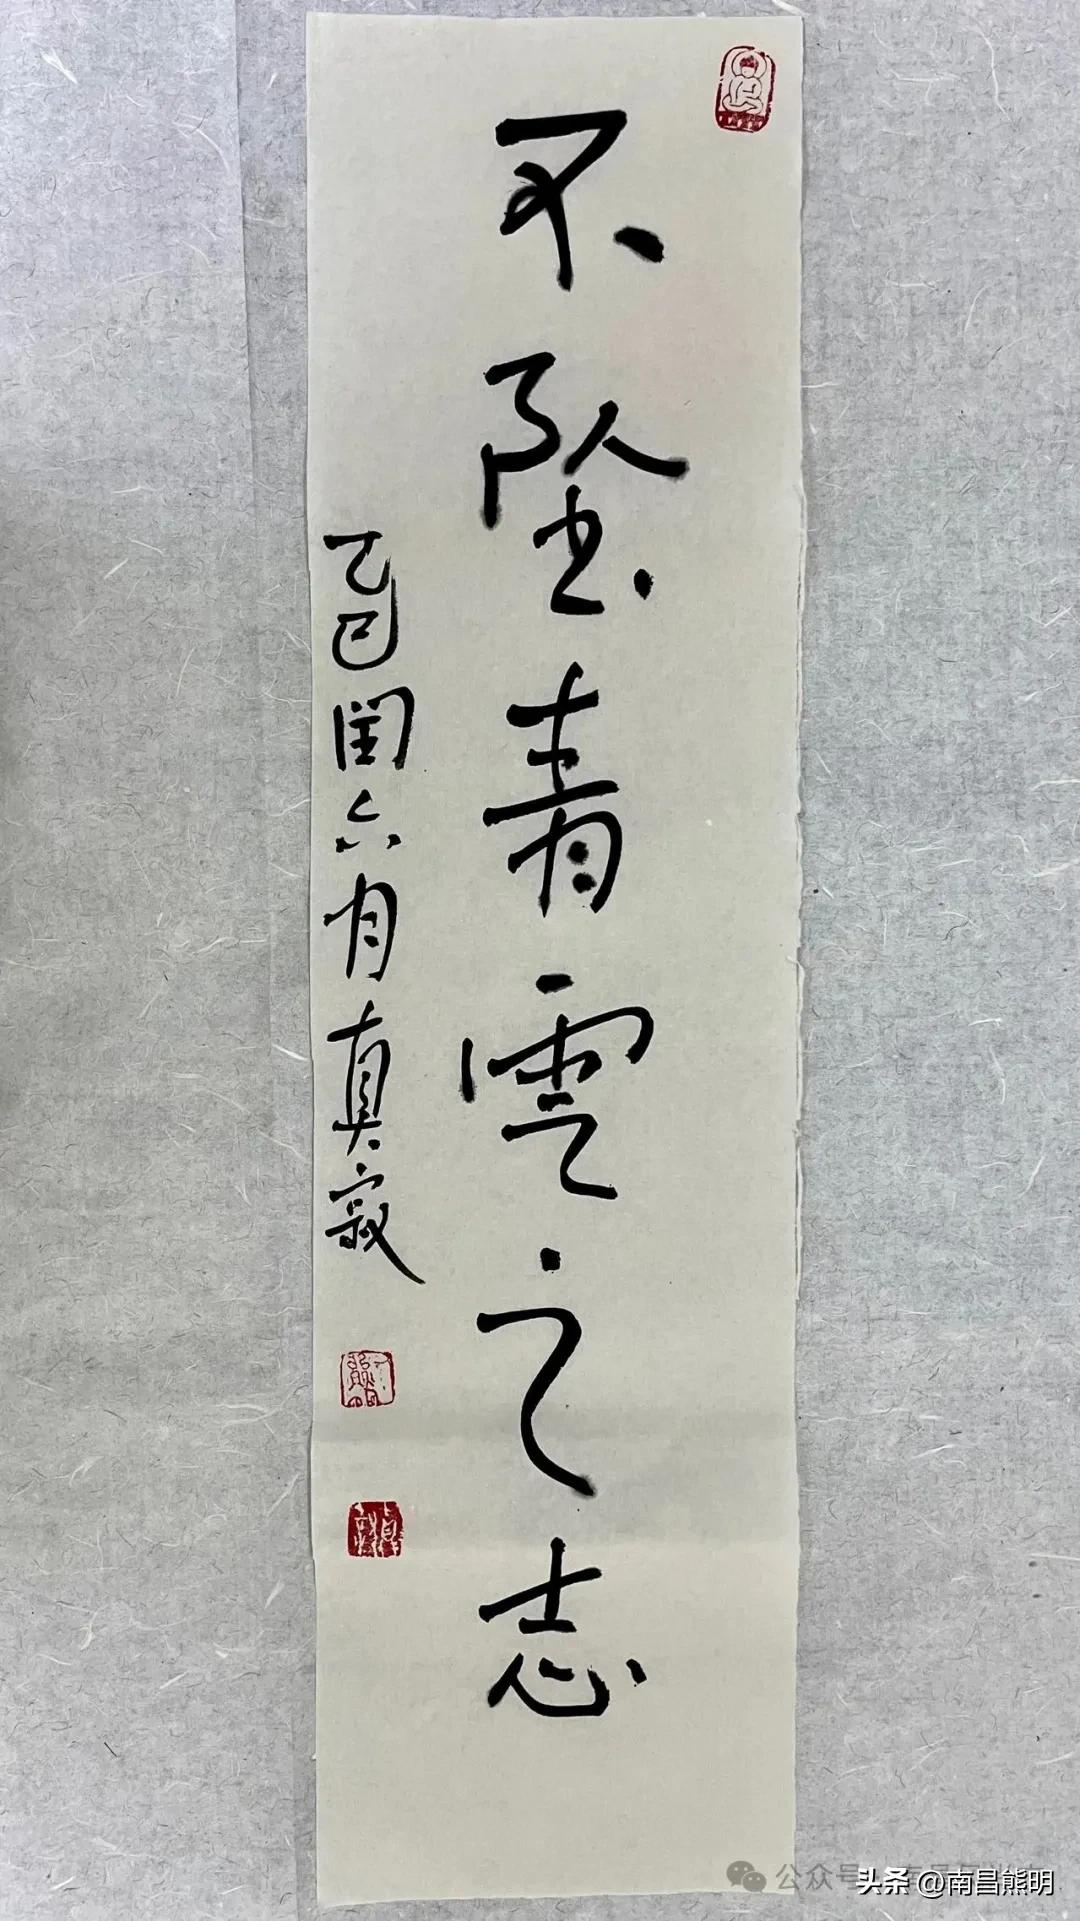 不坠青雲之志
乙巳闰六月真寂
公众号
头条 @南昌熊明